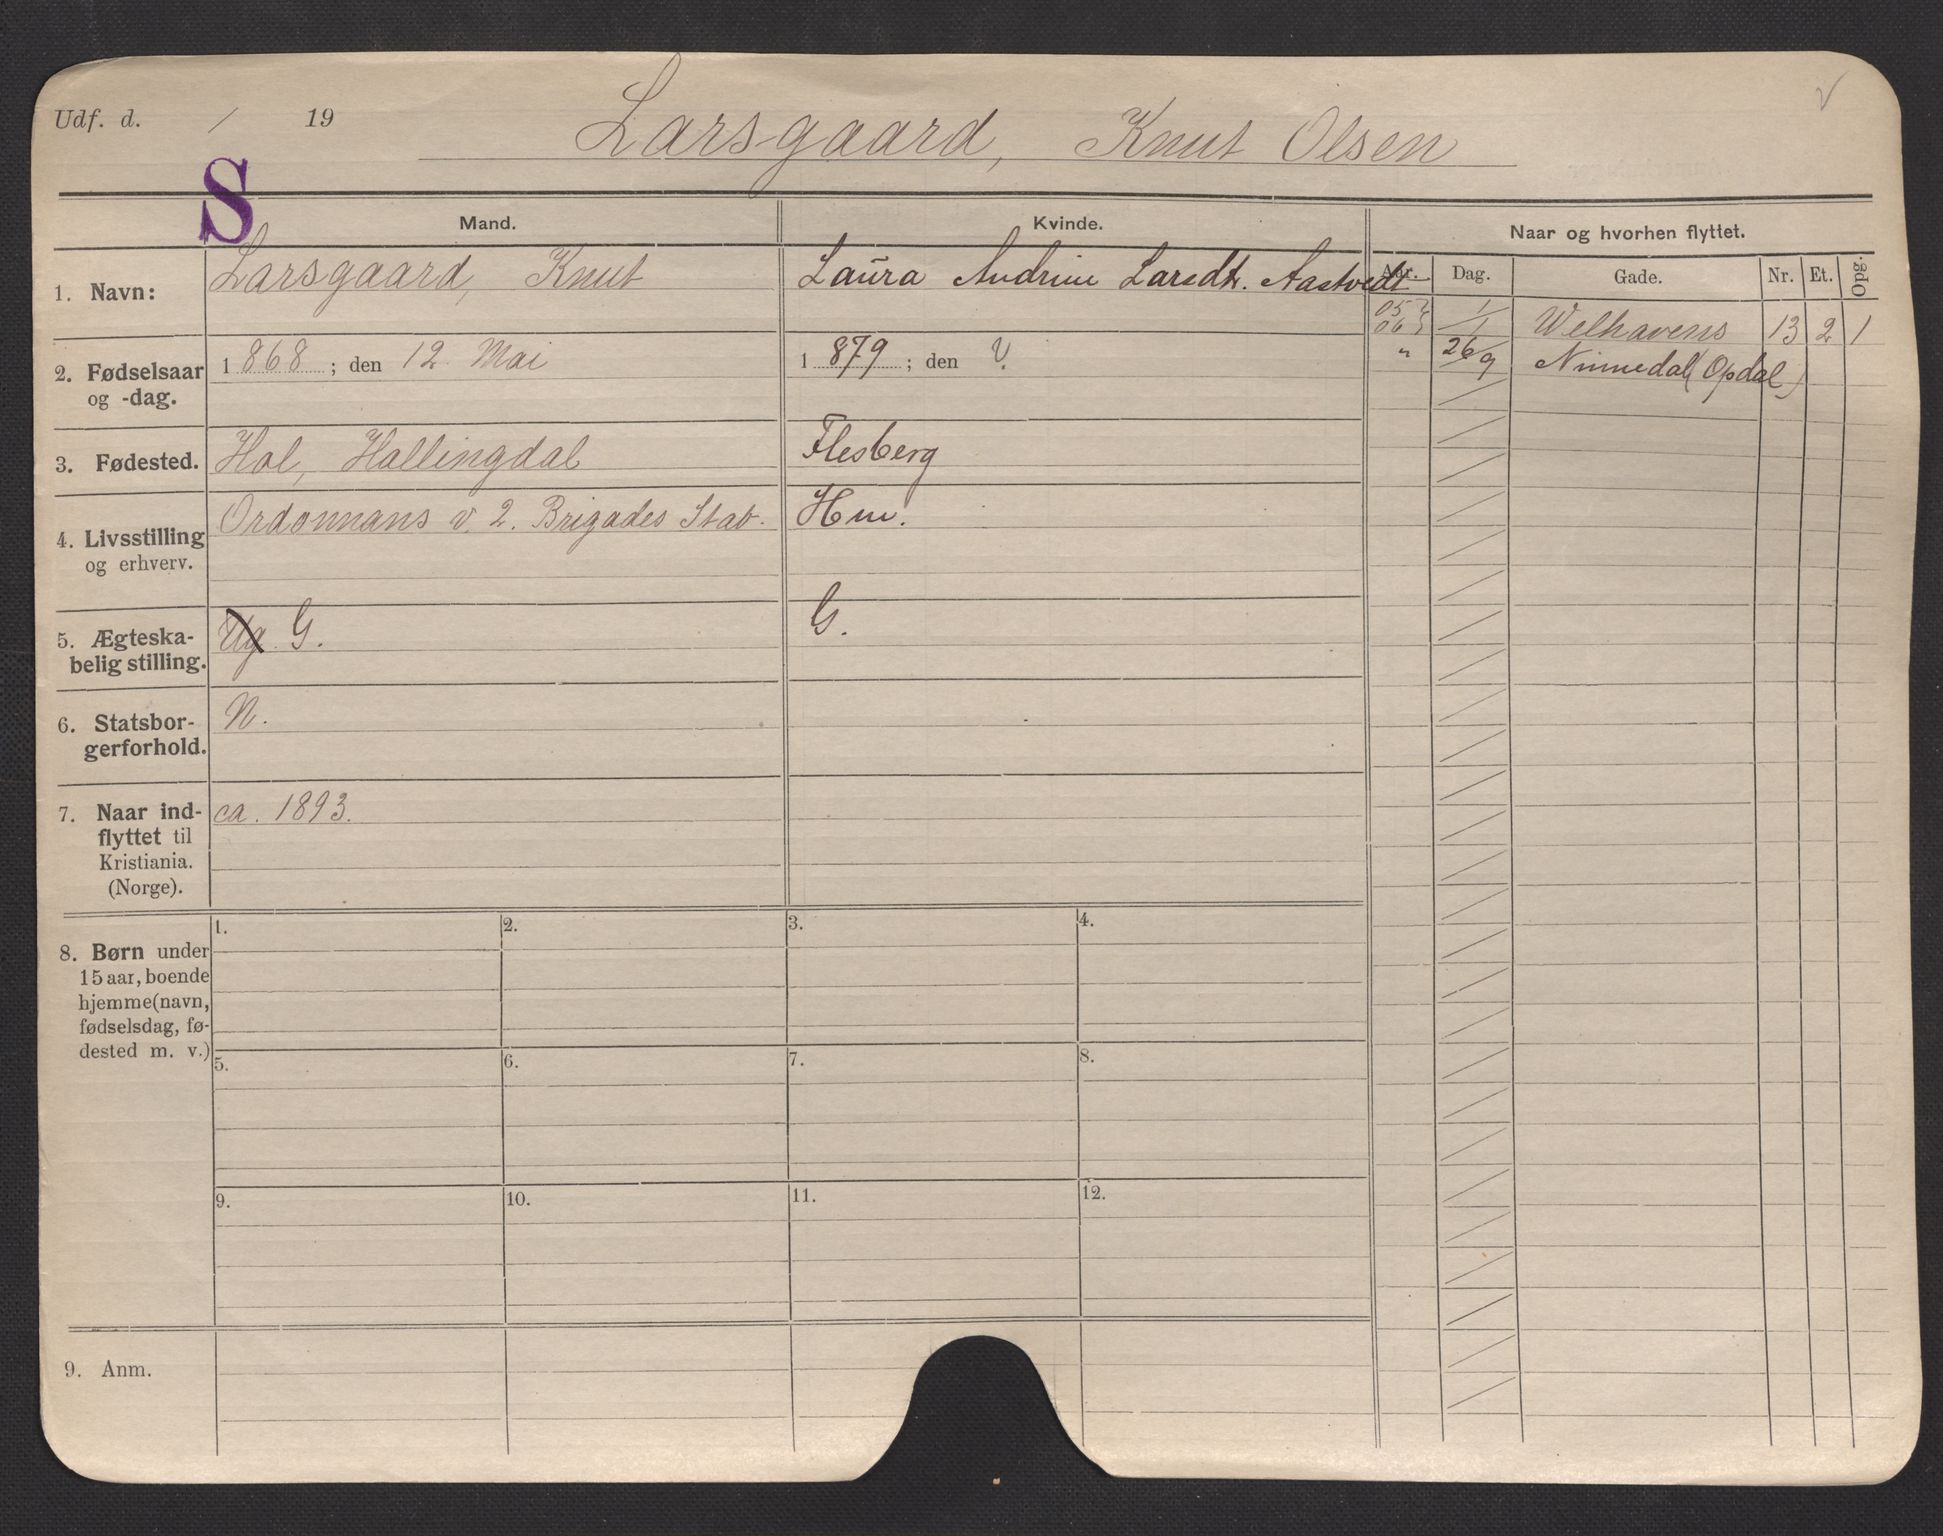 Udf. d. / 19
Larsgaard, Knut Olsen
S
Mand. Kvinde. Naar og hvorhen flyttet.
Aar. Dag. Gade. Nr. Et. Opg.
1. Navn: Larsgaard, Knut Laura Andrine Larsdt. Aastvedt
05 06 1/1 Welhavens 13 2 1
" 26/9 (Opdal)
2. Fødselsaar og -dag. 1868; den 12. Mai 1879; den
3. Fødested. Hol, Hallingdal Flesberg
4. Livsstilling og erhverv. Ordonnans v. 2. Brigades Stab. Hm.
5. Ægteska-
belig stilling. Ug. G. G.
6. Statsbor-
gerforhold. N.
7. Naar ind-
flyttet til
Kristiania.
(Norge). ca. 1893.
8. Børn under
15 aar, boende
hjemme (navn,
fødselsdag, fø-
dested m. v.)
1. 2. 3. 4.
5. 6. 7. 8.
9. 10. 11. 12.
9. Anm.